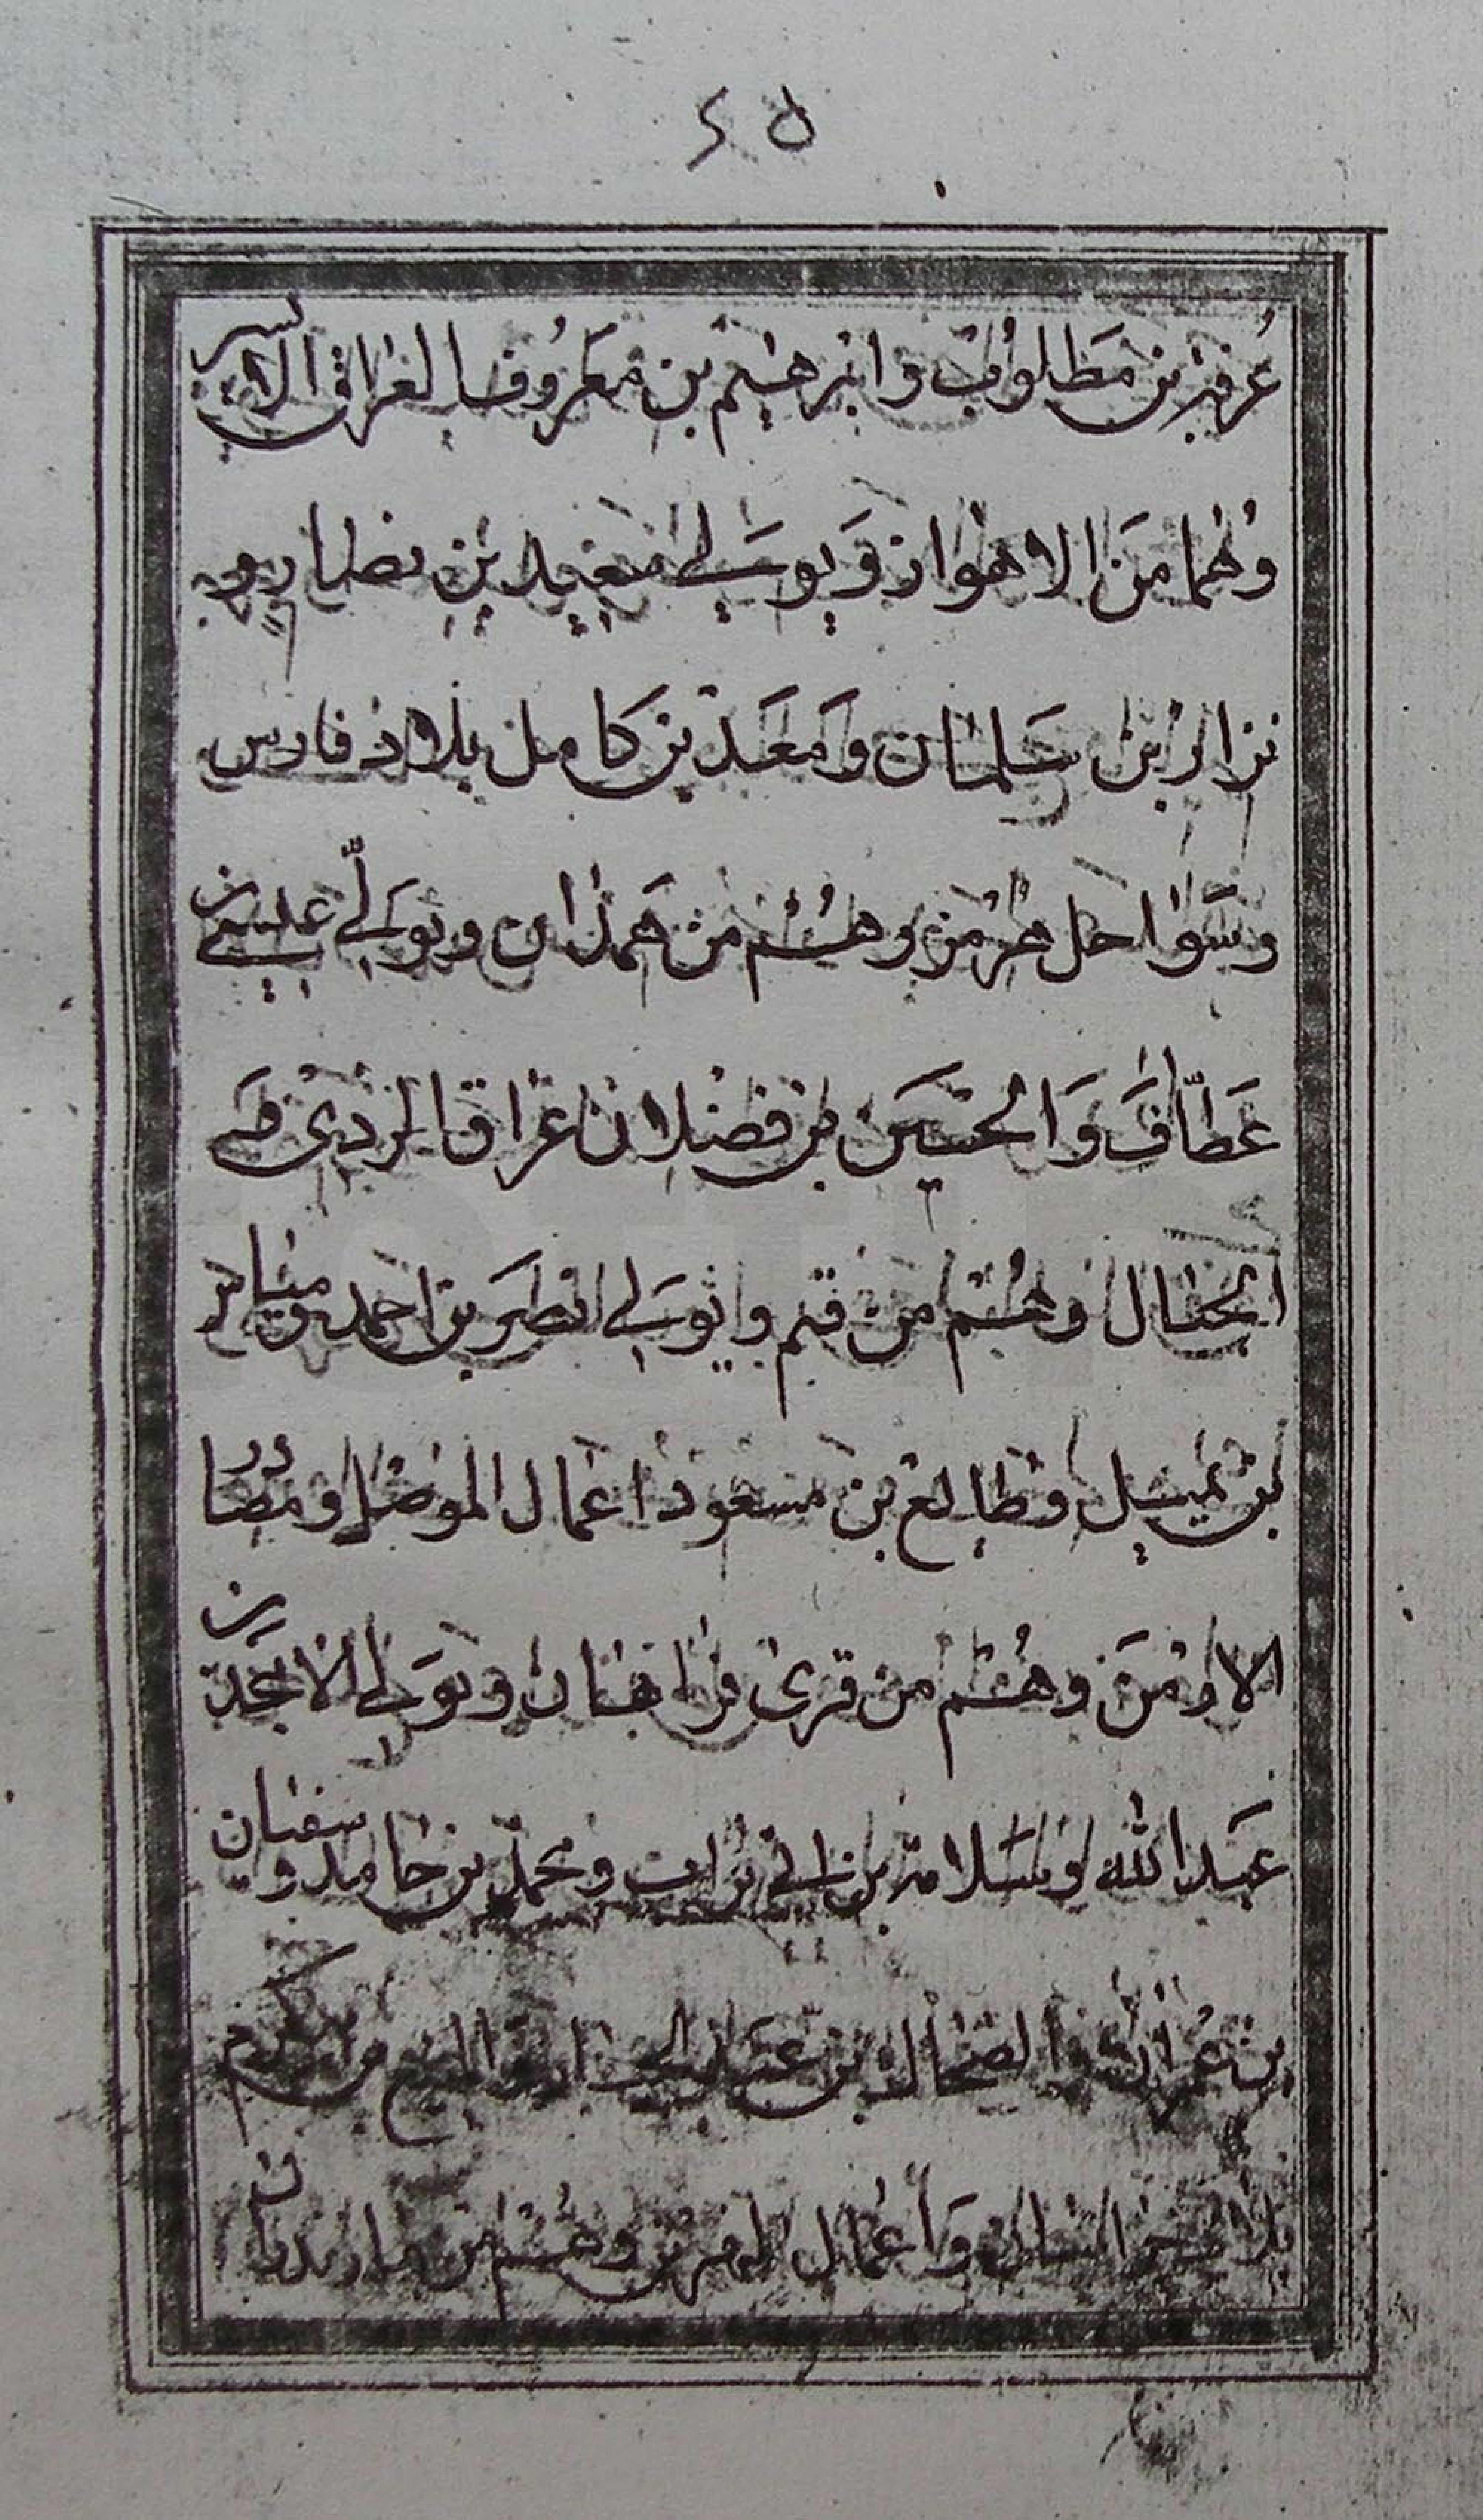 ٤٥
عزيز بن مطلوب وابرهيم بن معروف العراق الايسر
وهما من الاهواز ويولي سعيد بن نضار و
نزار بن سلمان ومعد بن كامل بلاد فارس
وسواحل هرمز وهم من همذان ويولي عيسى بن
عطاف والحسين بن فضلان عراق الري
الجبال وهم من قم ويولي نصر بن احمد
بن وطالع بن مسعود اعمال الموصل ومصادر
الارمن وهم من قرى ويولي الامجد بن
عبد الله وسلامة بن ابي ومحمد بن حامد وسفيان
بن عمران والضحاك بن عبد بن مكرم
بلاد واعمال وهم من مازندران